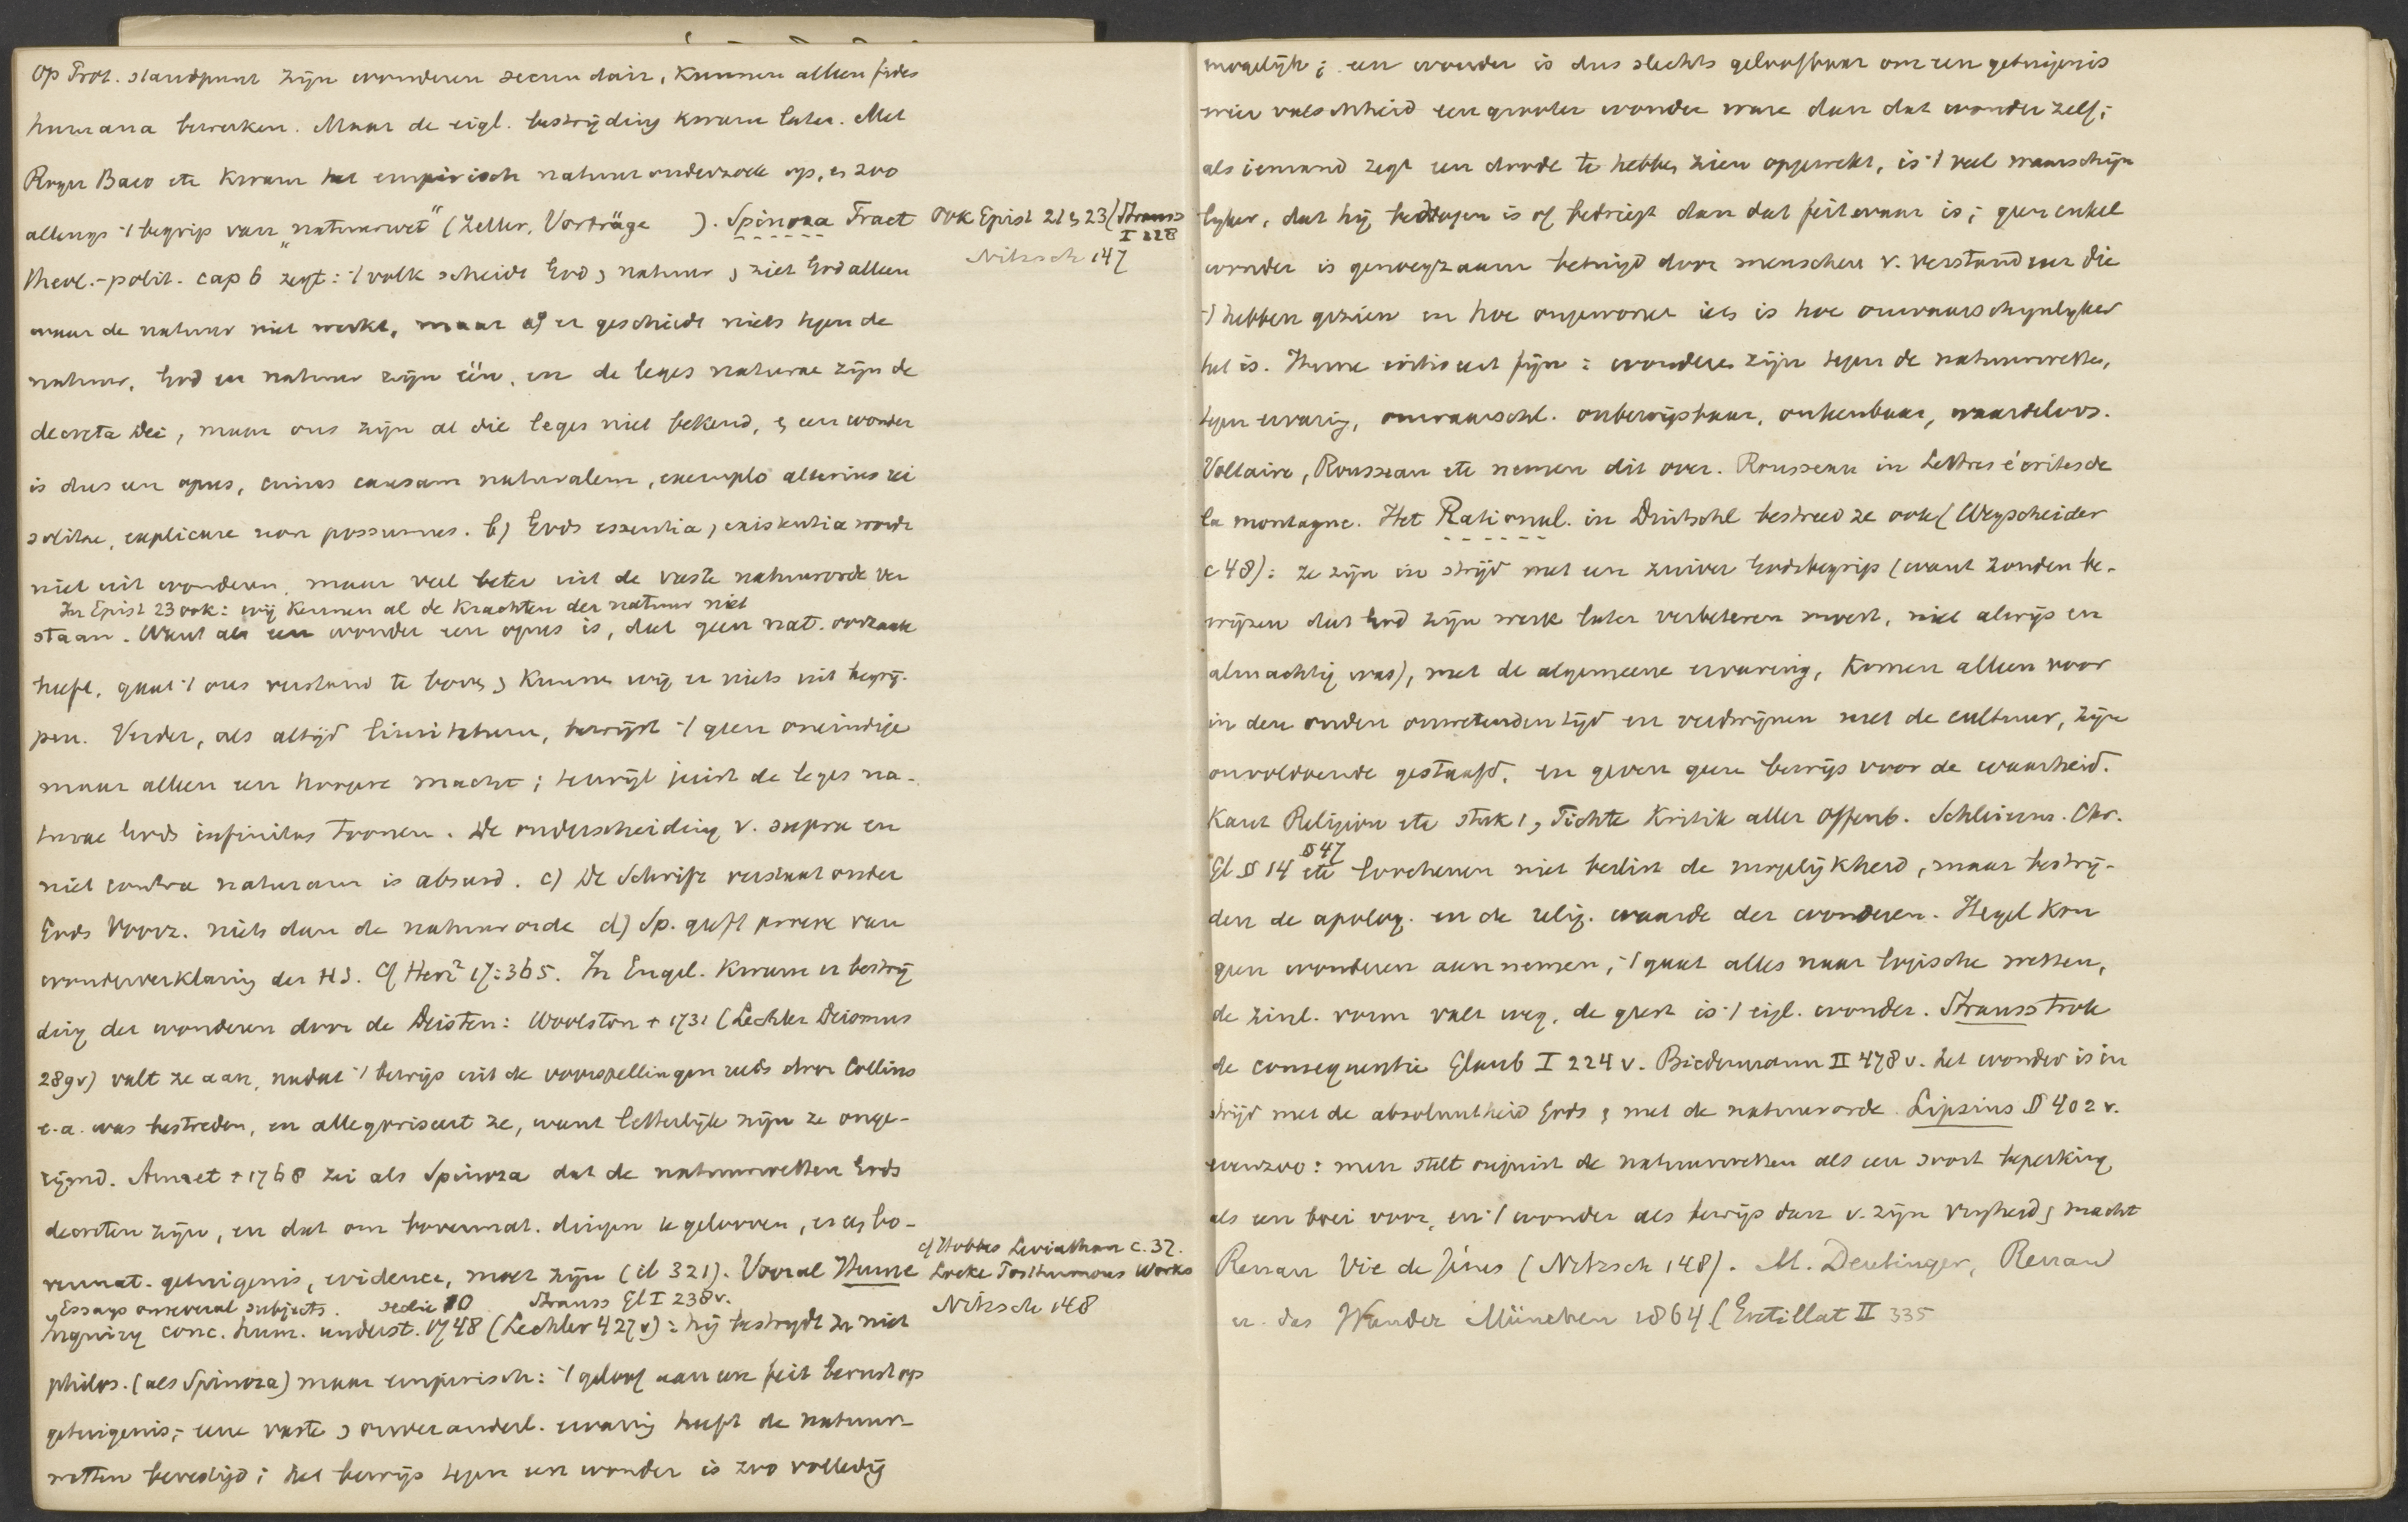 op Prot. standpunt zijn wonderen secundair, kunnen alleen fides
humana bewerken. Maar de eigl. bestrijding kwam later. Met
Roger Baco etc kwam het empirisch natuuronderzoek op, en zoo
allengs 't begrip van "natuurwet" (Zeller, Vorträge ). Spinoza Tract
theol.-polit. cap 6 zegt: 't volk scheidt God & natuur & ziet God alleen
waar de natuur niet werkt, maar a) er geschiedt niets tegen de
natuur, God en natuur zijn één, en de leges naturae zijn de
decreta Dei, maar ons zijn al die leges niet bekend, & een wonder
is dus een opus, cuius causam naturalem, exemplo alterius rei
solitae, explicare non possumus. b) Gods essentia & existentia wordt
niet uit wonderen, maar veel beter uit de vaste natuurorde ver
In Epist 23 ook: wij kennen al de krachten der natuur niet
staan. Want als een wonder een opus is, dat geen nat. oorzaak
heeft, gaat 't ons verstand te boven & kunnen wij er niets uit begrij-
pen. Verder, als altijd limitatum, bewijst 't geen oneindige
maar alleen een hoogere macht; terwijl juist de leges na-
turae Gods infinitas toonen. De onderscheiding v. supra en
niet contra naturam is absurd. c) De Schrift verstaat onder
Gods Voorz. niets dan de natuurorde d) Sp. geeft proeve van
wonderverklaring der HS. Cf Herz² 17:365. In Engel. kwam er bestrij
ding der wonderen door de Deisten: Woolston + 1731 (Lechler Deismus
289v) valt ze aan, nadat 't bewijs uit de voorspellingen reeds door Collins
e.a. was bestreden, en allegoriseert ze, want letterlijk zijn ze onge-
rijmd. Annet + 1768 zei als Spinoza dat de natuurwetten Gods
decreten zijn, en dat om bovennat. dingen te gelooven, er ook bo-
vennat. getuigenis, evidence, moet zijn (ib 321). Vooral Hume
Essays on several subjects. sectie 10 Strauss Gl I 238v.
Inquiry conc. hum. underst. 1748 (Lechler 427v): hij bestrijdt ze niet
philos. (als Spinoza) maar empirisch: 't geloof aan een feit berust op
getuigenis; eene vaste & onveranderl. ervaring heeft de natuur-
wetten bevestigd; het bewijs tegen een wonder is zoo volledig
ook Epist 21 & 23 (Strauss
I 228
Nitzsch 147
cf Hobbes Leviathan c. 37.
Locke Posthumous Works
Nitzsch 148
mogelijk; een wonder is dus slechts geloofbaar om een getuigenis
wier valschheid een grooter wonder ware dan dat wonder zelf;
als iemand zegt een doode te hebben zien opgewekt, is 't veel waarschijn
lyker, dat hij bedrogen is of bedriegt dan dat feit waar is; geen enkel
wonder is genoegzaam betuigd door menschen v. verstand eer die
't hebben gezien en hoe ongewoner iets is hoe onwaarschynlyker
het is. Hume critiseert fijn: wonderen zijn tegen de natuurwetten,
tegen ervaring, onwaarschl. onbewijsbaar, onkenbaar, waardeloos.
Voltaire, Rousseau etc nemen dit over. Rousseau in Lettres écrites de
la montagne. Het Rational. in Duitschl bestreed ze ook (Wegscheider
c 48): ze zijn in strijd met een zuiver Godsbegrip (want zouden be-
wijzen dat God zijn werk later verbeteren moest, niet alwijs en
almachtig was), met de algemeene ervaring, komen alleen voor
in den ouden onwetenden tijd en verdwijnen met de cultuur, zijn
onvoldoende gestaafd, en geven geen bewijs voor de waarheid.
Kant Religion etc stuk 1, Fichte Kritik aller Offenb. Schleierm. Chr.
Gl § 14 § 47 etc loochenen niet beslist de mogelijkheid, maar bestrij-
den de apolog. en de relig. waarde der wonderen. Hegel kon
geen wonderen aannemen, 't gaat alles naar logische wetten,
de zinl. vorm valt weg, de geest is 't eigl. wonder. Strauss trok
de consequentie Glaub I 224 v. Biedermann II 478 v. het wonder is in
strijd met de absoluutheid Gods & met de natuurorde. Lipsius § 402 v.
evenzoo: men stelt onjuist de natuurwetten als een soort beperking,
als een boei voor, en 't wonder als bewijs dan v. zijn vryheid & macht
Renan Vie de Jésus (Nitzsch 148). M. Deutinger, Renan
u. das Wunder München 1864 (Gretillat II 335